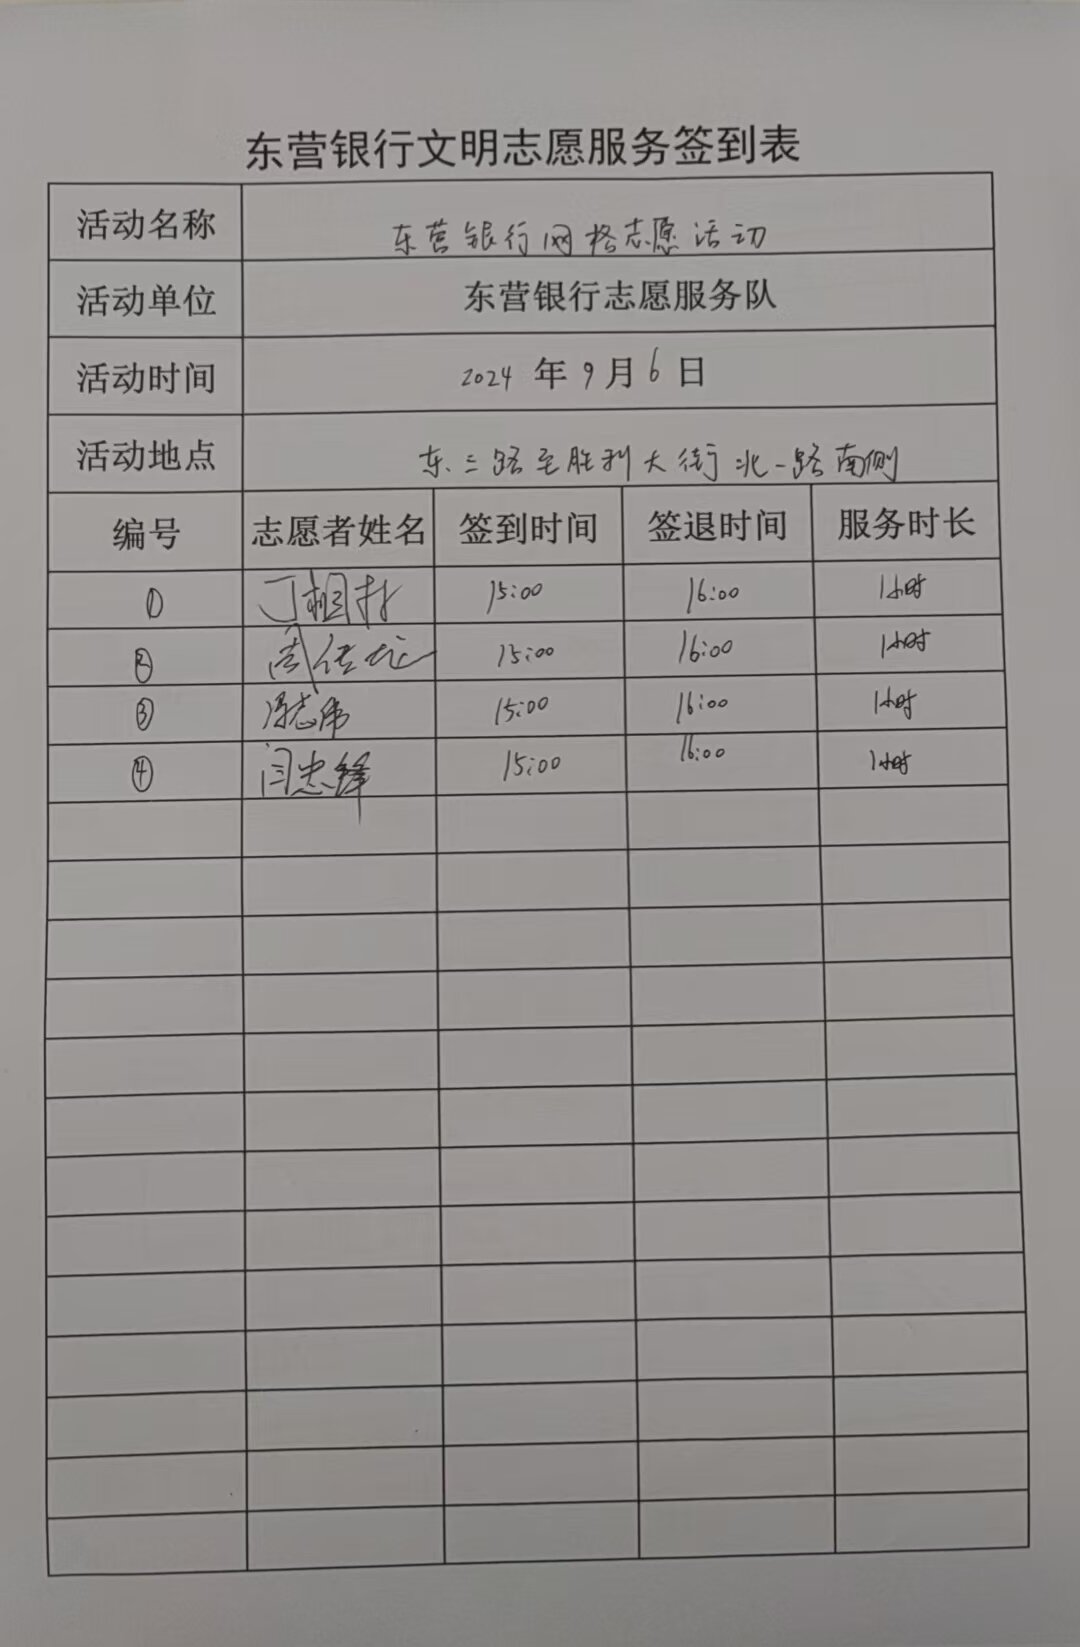 东营银行文明志愿服务签到表
活动名称 东营银行网格志愿活动
活动单位 东营银行志愿服务队
活动时间 2024 年 9 月 6 日
活动地点 东三路至胜利大街北一路南侧
编号 志愿者姓名 签到时间 签退时间 服务时长
① 丁相村 15:00 16:00 1小时
② 周 15:00 16:00 1小时
③ 冯志伟 15:00 16:00 1小时
④ 闫忠锋 15:00 16:00 1小时